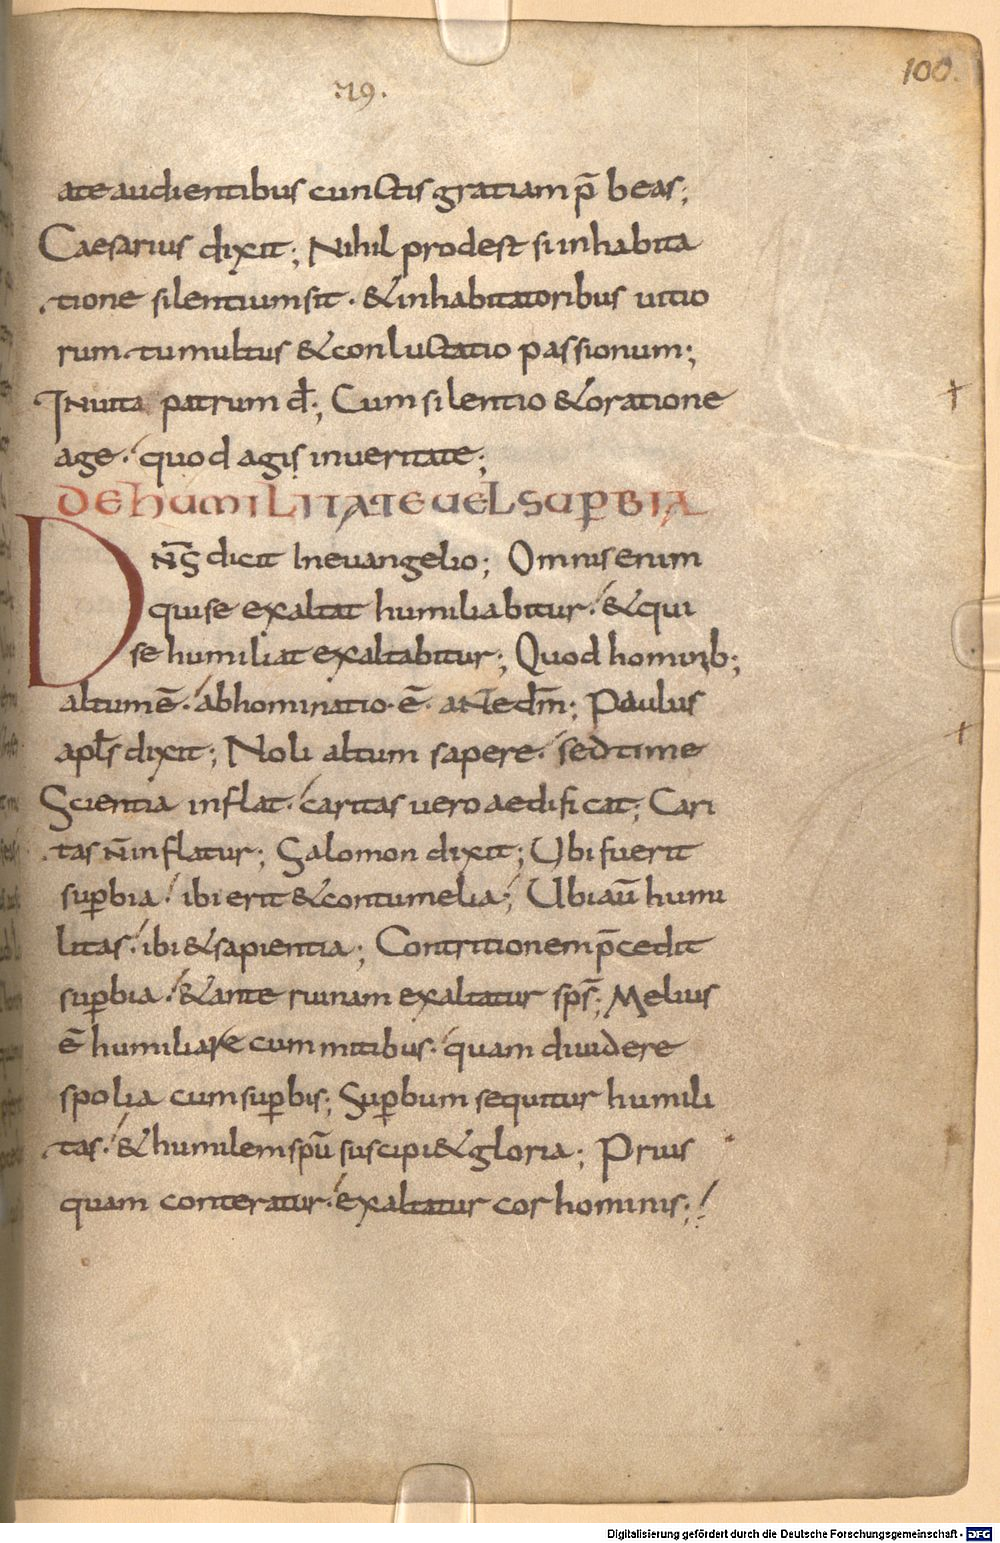 79.
100.
ate audientibus cunctis gratiam p̄beas;
Caesarius dixit; Nihil prodest si inhabita
tione silentium sit · & inhabitatoribus uitio
rum tumultus & conluctatio passionum;
In uita patrum d̄; Cum silentio & oratione
age · quod agis in ueritate;
DE HUMILITATE UEL SUPBIA
DN̄S dicit In euangelio; Omnis enim
qui se exaltat humiliabitur · & qui
se humiliat exaltabitur; Quod hominib;
altum ē · abhominatio · ē · aNte dm̄; Paulus
apłs dixit; Noli altum sapere · sed time
Scientia inflat · caritas uero aedificat; Cari
tas n̄ inflatur; Salomon dixit; Ubi fuerit
supbia · ibi erit & contumelia; Ubi aū humi
litas · ibi & sapientia; Contritionem p̄cedit
supbia · & ante ruinam exaltatur sps̄; Melius
ē humiliare cum mitibus · quam diuidere
spolia cum supbis; Supbum sequitur humili
tas · & humilem spū suscipi& gloria; Prius
quam conteratur · exaltatur cor hominis;
Digitalisierung gefördert durch die Deutsche Forschungsgemeinschaft - DFG